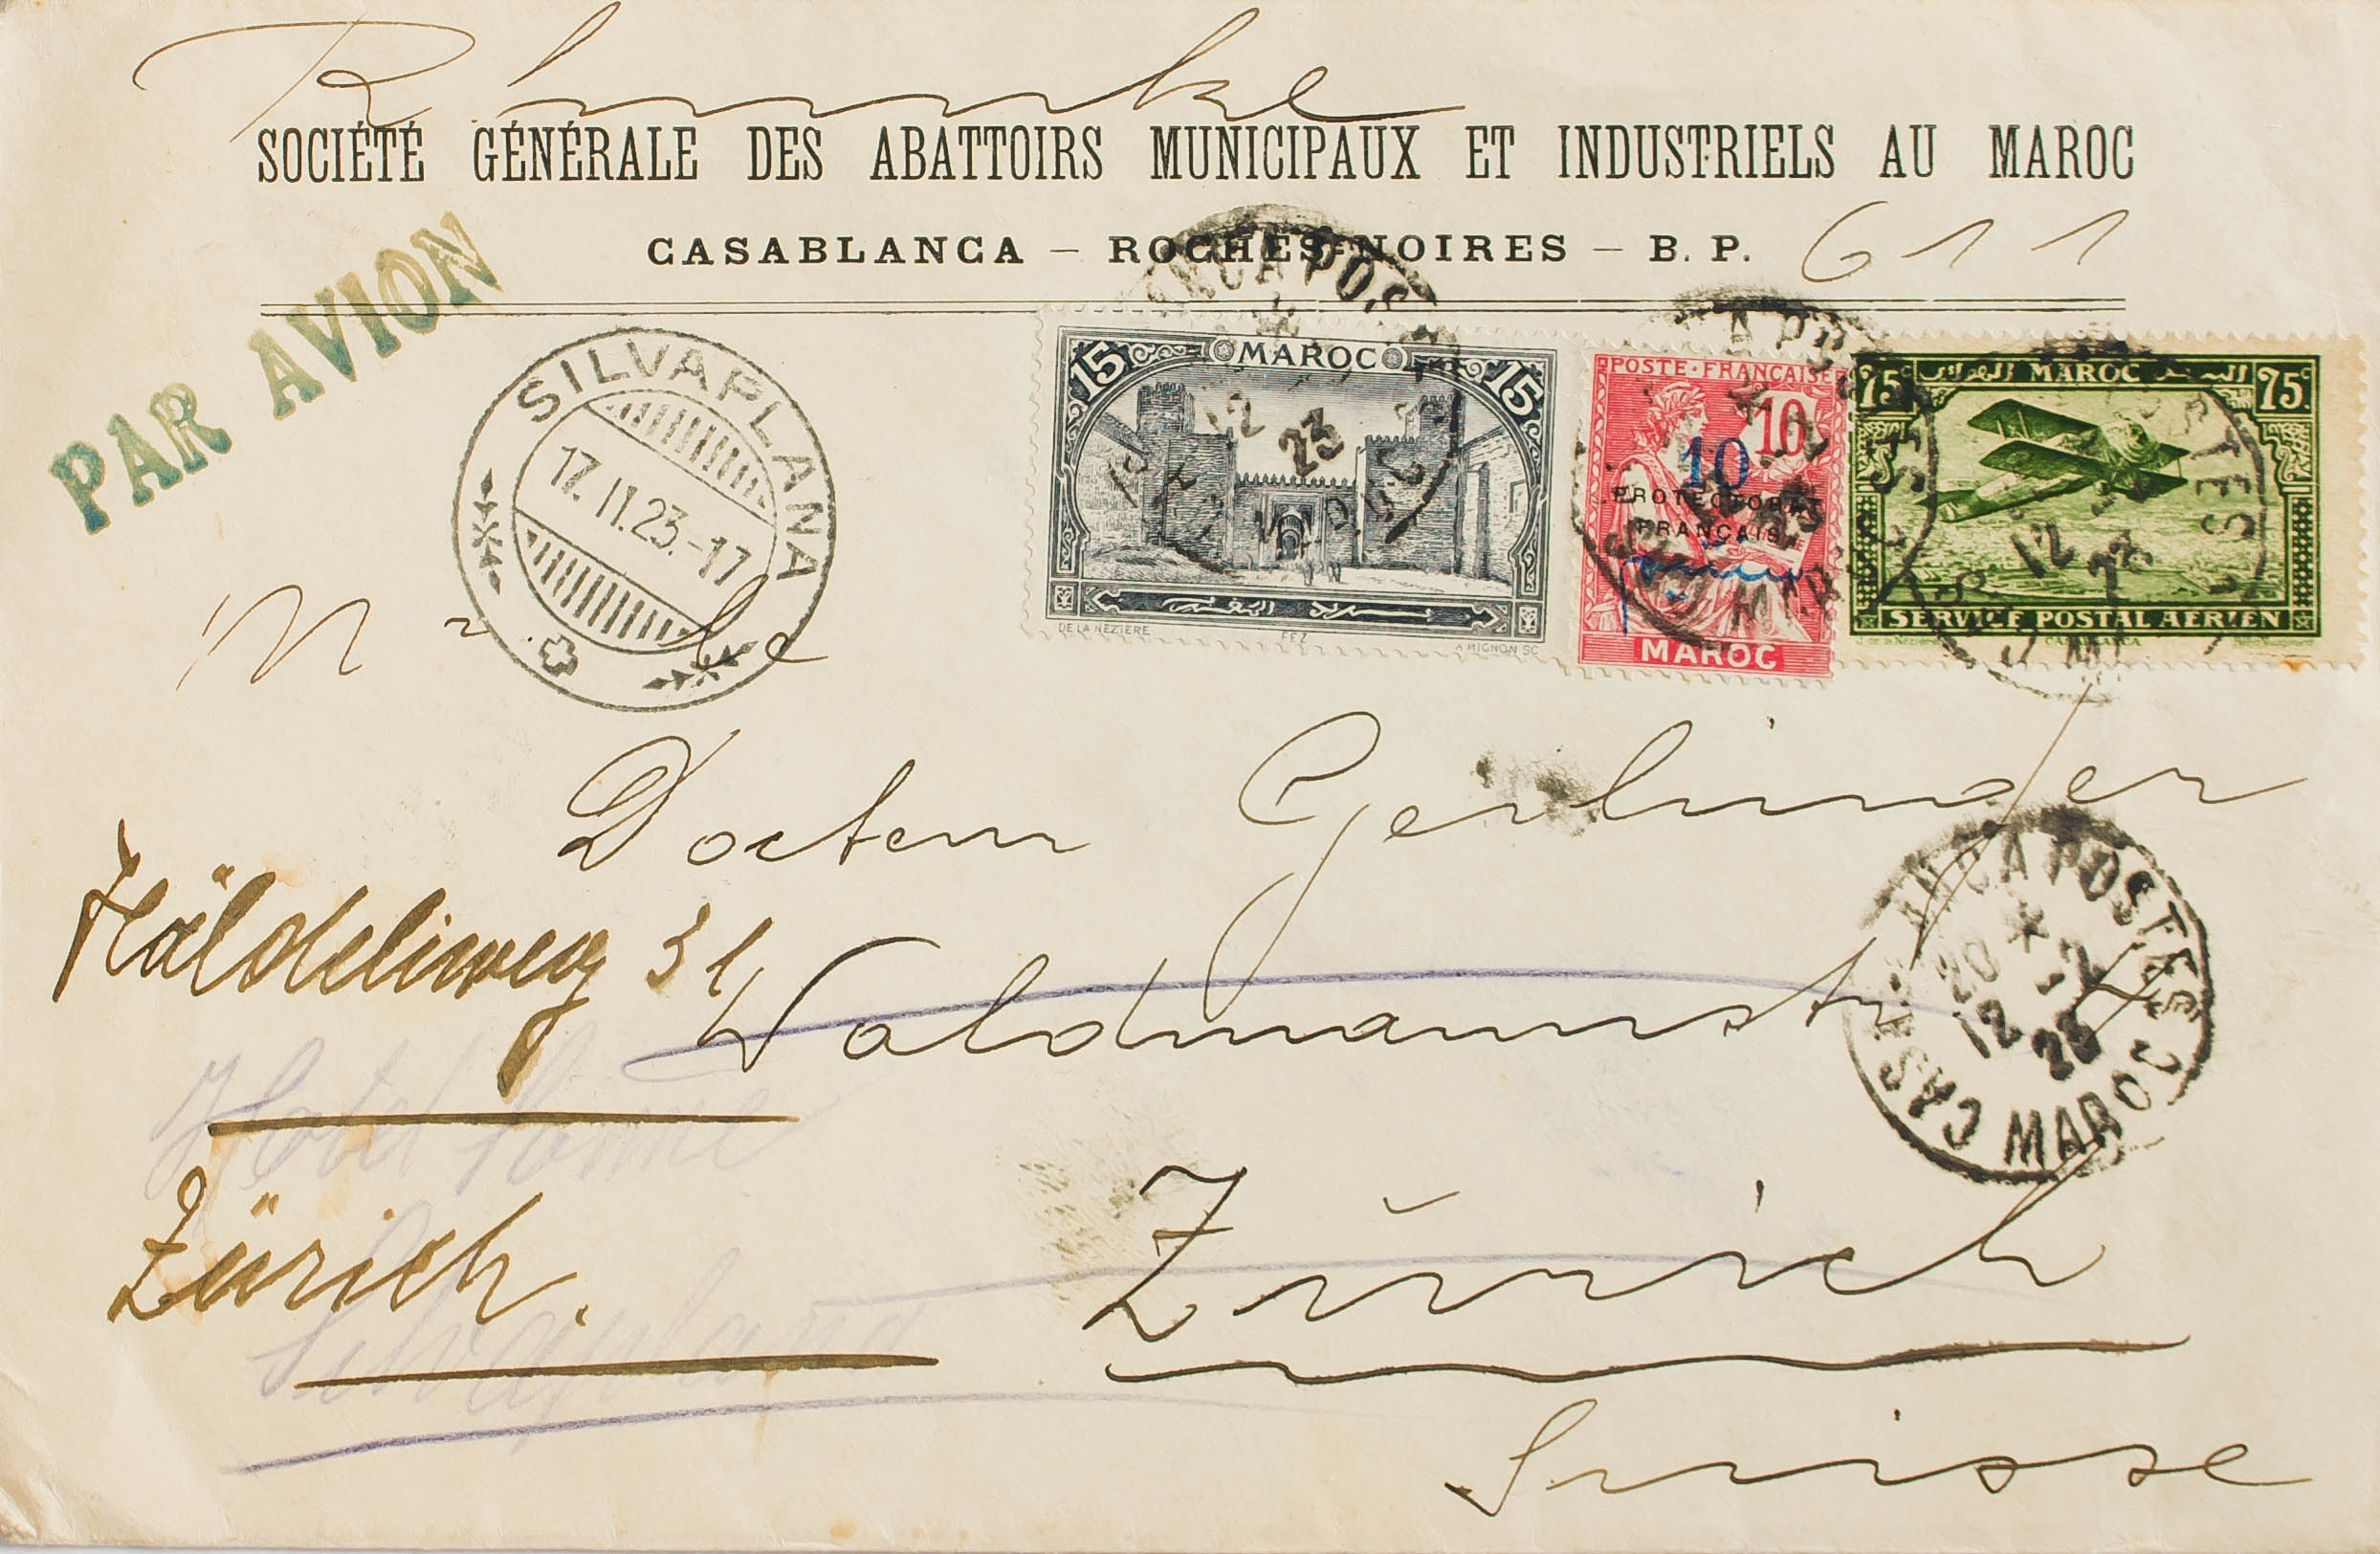 SOCIÉTÉ GÉNÉRALE DES ABATTOIRS MUNICIPAUX ET INDUSTRIELS AU MAROC
CASABLANCA – ROCHES-NOIRES – B. P. 611
PAR AVION
SILVAPLANA
17.II.23.-17
15 MAROC 15
12 23
DE LA NEZIERE FEZ A MIGNON SC
POSTE·FRANÇAISE
10
10
PROTECTORAT
FRANÇAIS
MAROC
75c MAROC 75c
12
SERVICE POSTAL AERIEN
CASABLANCA
Docteur Gerlinger
Häldeliweg 31
Waldmannstr.
CASABLANCA POSTES
20
12 -2
23
MAROC
Hotel Sonne
Zürich.
Zürich
Silvaplana
Suisse